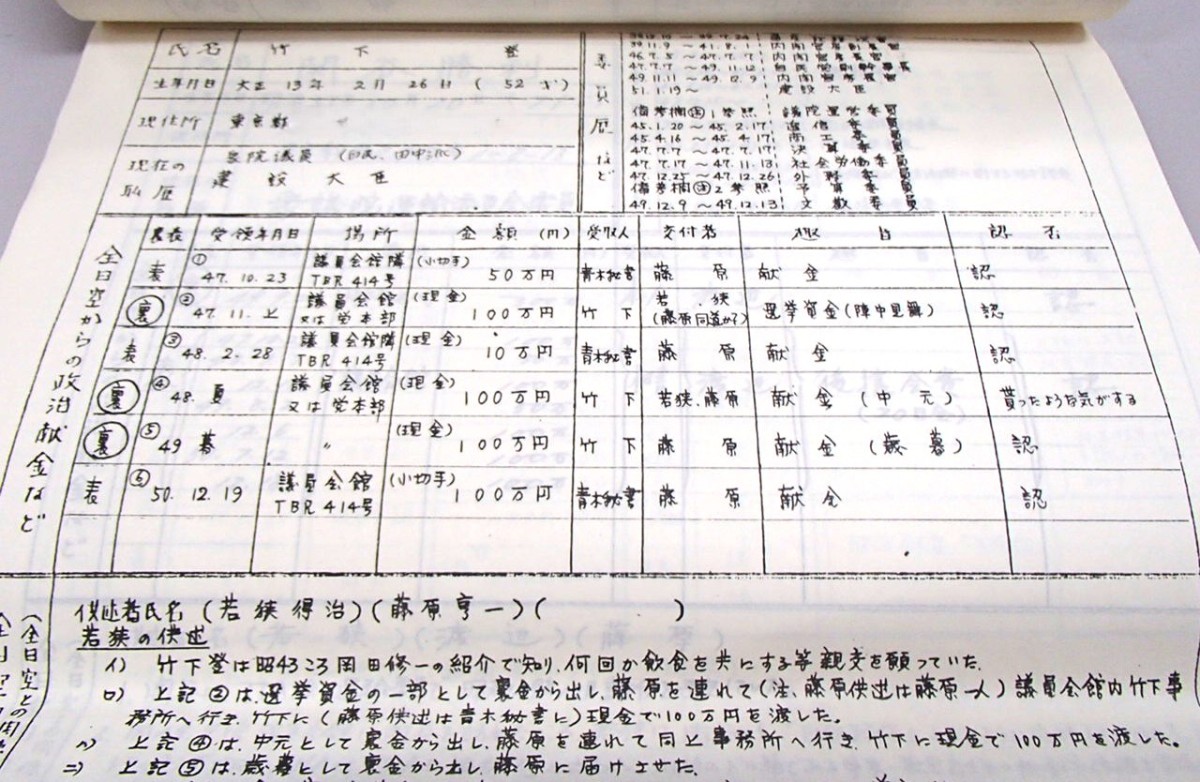 氏名 竹下登
生年月日 大正13年2月26日(52才)
現住所 東京都 〃
現在の職歴 衆院議員(自民、田中派)
建設大臣
要員歴など
39.11.9 ～ 41.8.1 内閣官房副長官
46.7.5 ～ 47.7.7 内閣官房長官
49.11.11 ～ 49.12.9 内閣官房長官
51.1.19 ～ 建設大臣
備考欄㊟1参照 議院運営委員
45.1.20 ～ 45.2.17 逓信委員
45.4.16 ～ 45.4.17 商工委員
47.7.7 ～ 47.7.17 決算委員
47.7.17 ～ 47.11.13 社会労働委員
47.12.25 ～ 47.12.26 外務委員
備考欄㊟2参照 予算委員
49.12.9 ～ 49.12.13 文教委員
全日空からの政治献金など
裏表 受領年月日 場所 金額(円) 受取人 交付者 趣旨 認否
表 ① 47.10.23 議員会館隣 TBR 414号 (小切手) 50万円 青木秘書 藤原 献金 認
裏 ② 47.11.上 議員会館又は党本部 (現金) 100万円 竹下 若狭(藤原同道か?) 選挙資金(陣中見舞) 認
表 ③ 48.2.28 議員会館隣 TBR 414号 (現金) 10万円 青木秘書 藤原 献金 認
裏 ④ 48.夏 議員会館又は党本部 (現金) 100万円 竹下 若狭、藤原 献金(中元) 貰ったような気がする
裏 ⑤ 49 暮 〃 (現金) 100万円 竹下 藤原 献金(歳暮) 認
表 ⑥ 50.12.19 議員会館 TBR 414号 (小切手) 100万円 青木秘書 藤原 献金 認
供述者氏名(若狭得治)(藤原亨一)( )
若狭の供述
イ) 竹下登は昭43ころ岡田修一の紹介で知り、何回か飲食を共にする等親交を願っていた。
ロ) 上記②は、選挙資金の一部として裏金から出し、藤原を連れて(注、藤原供述は藤原一人)議員会館内竹下事
務所へ行き、竹下に(藤原供述は青木秘書に)現金で100万円を渡した。
ハ) 上記④は、中元として裏金から出し、藤原を連れて同上事務所へ行き、竹下に現金で100万円を渡した。
ニ) 上記⑤は、歳暮として裏金から出し、藤原に届けさせた。